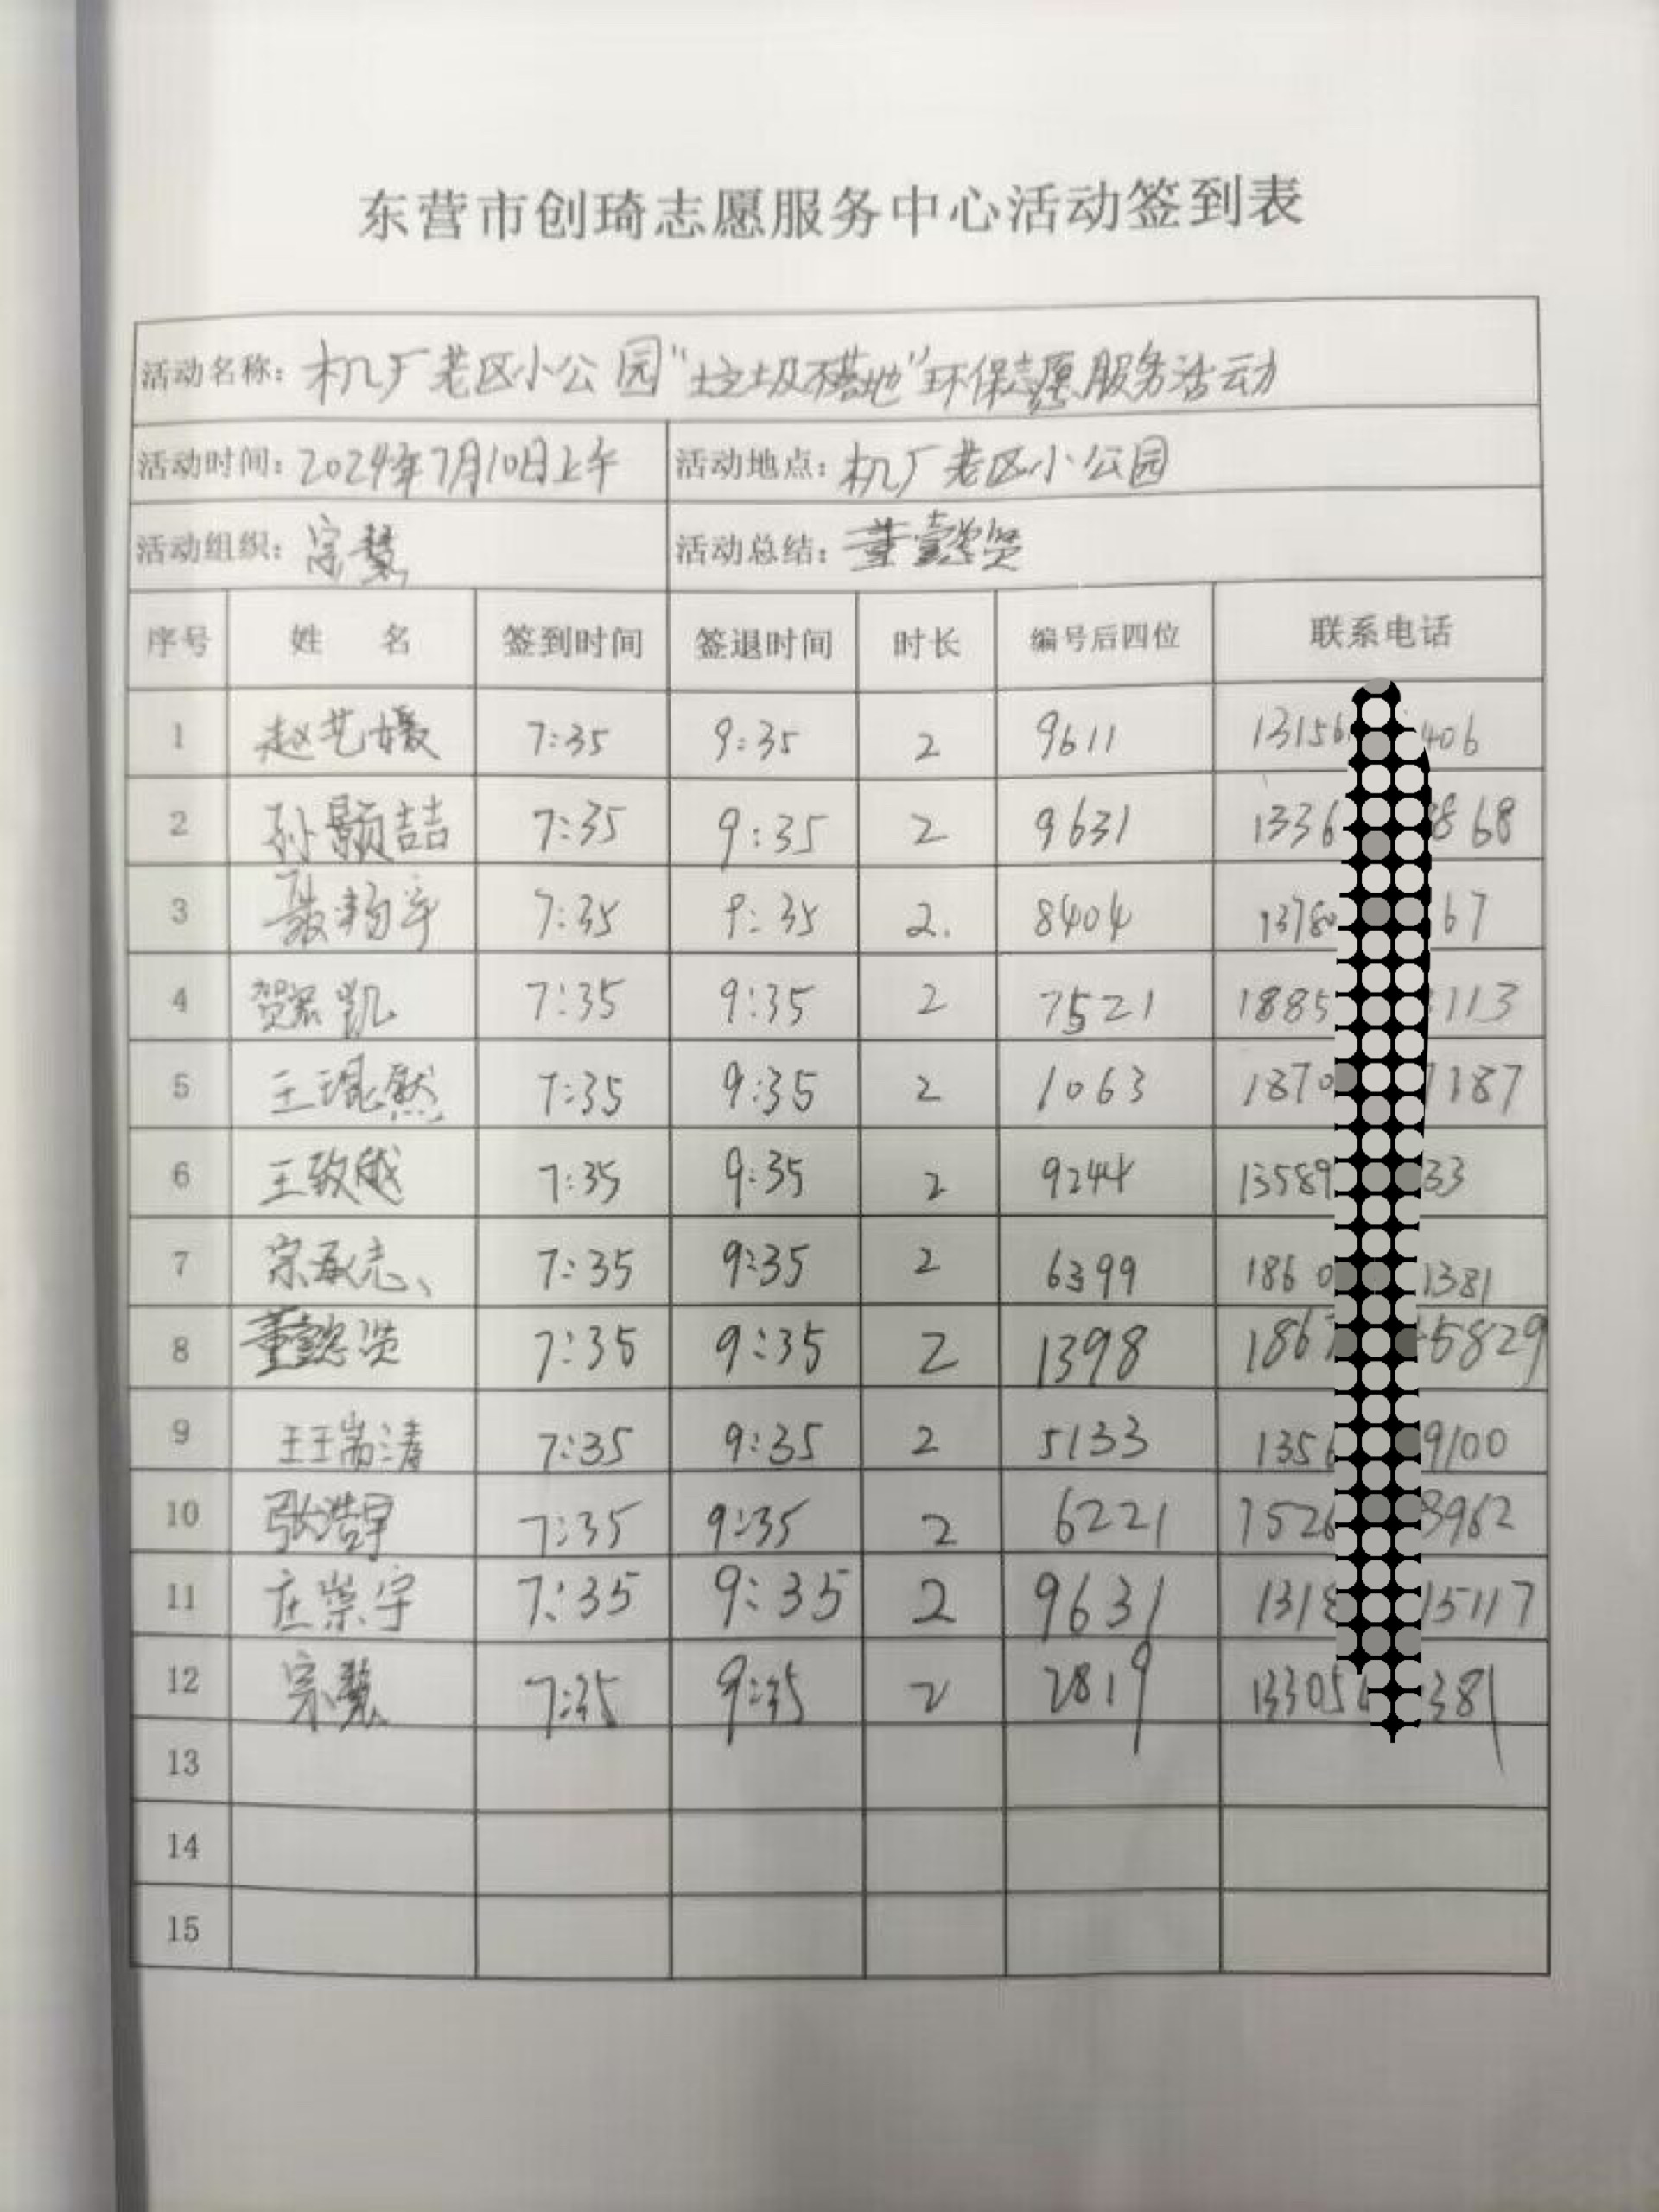 东营市创琦志愿服务中心活动签到表
活动名称：机厂老区小公园"垃圾不落地"环保志愿服务活动
活动时间：2024年7月10日上午 活动地点：机厂老区小公园
活动组织：宗慧 活动总结：董懿贤
序号 姓 名 签到时间 签退时间 时长 编号后四位 联系电话
1 赵艺媛 7:35 9:35 2 9611 13156 406
2 孙颢喆 7:35 9:35 2 9631 1336 868
3 7:35 9:35 2. 8404 1378 67
4 贺宸凯 7:35 9:35 2 7521 1885 113
5 王琨然 7:35 9:35 2 1063 1870 187
6 王致越 7:35 9:35 2 9244 13589 33
7 宗承志、 7:35 9:35 2 6399 1860 1381
8 董懿贤 7:35 9:35 2 1398 186 5829
9 王瑞涛 7:35 9:35 2 5133 135 9100
10 张浩宇 7:35 9:35 2 6221 1526 3962
11 庄崇宇 7:35 9:35 2 9631 131 15117
12 宗慧 7:35 9:35 2 2819 13305 381
13
14
15